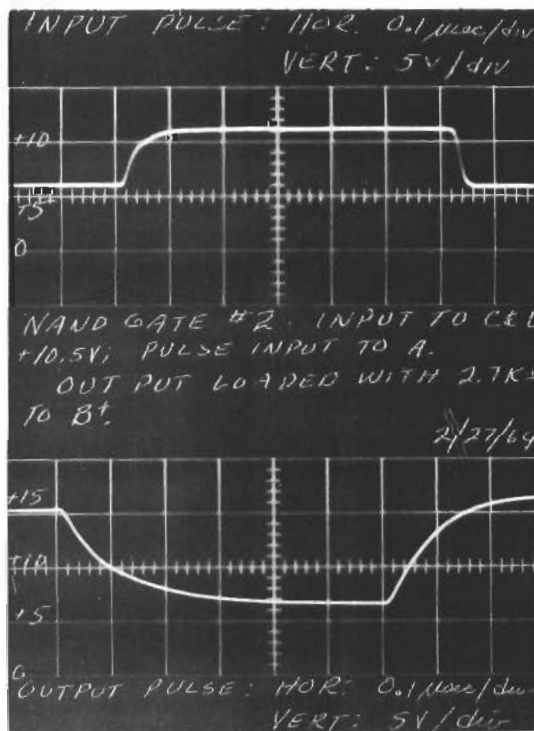 INPUT PULSE: HOR. 0.1 µsec/div
VERT: 5V/div
+10
+5
0
NAND GATE #2. INPUT TO C&E
+10.5V; PULSE INPUT TO A.
OUTPUT LOADED WITH 2.7K
TO B+.
2/27/64
+15
+10
+5
0
OUTPUT PULSE: HOR: 0.1 µsec/div
VERT: 5V/div